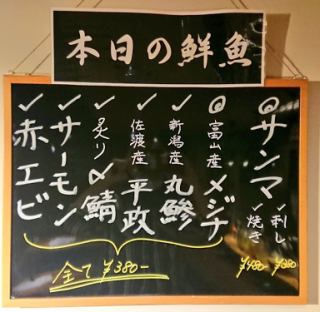 本日の鮮魚
◎サンマ
✓刺し ¥380
✓焼き ¥480
◎富山産 メジナ
✓新潟産 丸鯵
✓佐渡産 平政
✓炙り〆鯖
✓サーモン
✓赤エビ
全て ¥380-